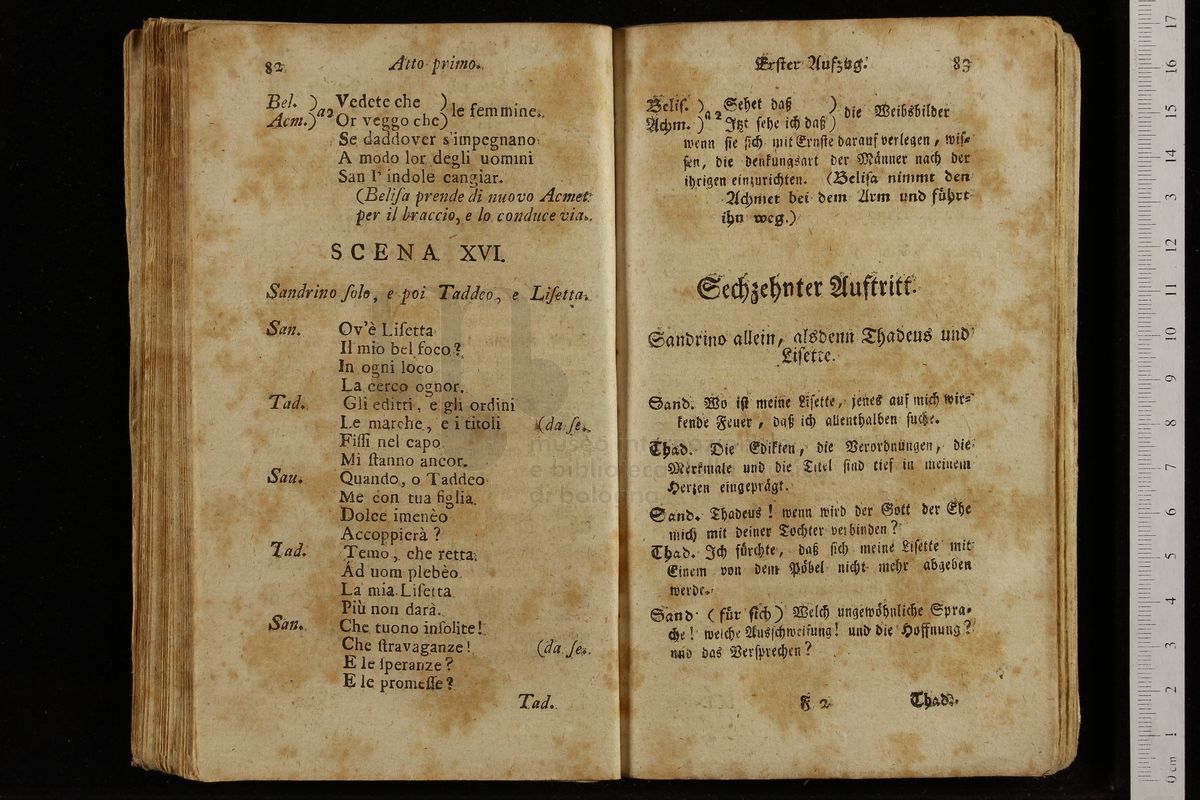 82 Atto primo.
Bel. ) a 2 Vedete che ) le femmine.
Acm. ) Or veggo che )
Se daddover s'impegnano
A modo lor degli uomini
San l' indole cangiar.
(Beliſa prende di nuovo Acmet
per il braccio, e lo conduce via.
SCENA XVI.
Sandrino ſolo, e poi Taddeo, e Liſetta.
San. Ov'è Liſetta
Il mio bel foco?
In ogni loco
La cerco ognor.
Tad. Gli editti, e gli ordini
Le marche, e i titoli (da ſe.
Fiſſi nel capo
Mi ſtanno ancor.
San. Quando, o Taddeo
Me con tua figlia
Dolce imenèo
Accoppierà?
Tad. Temo, che retta
Ad uom plebèo
La mia Liſetta
Più non darà.
San. Che tuono inſolite!
Che ſtravaganze! (da ſe.
E le ſperanze?
E le promeſſe?
Tad.
Erſter Aufzug. 83
Beliſ. ) a 2 Sehet daß ) die Weibsbilder
Achm. ) Itzt ſehe ich daß )
wenn ſie ſich mit Ernſte darauf verlegen, wiſ-
ſen, die denkungsart der Männer nach der
ihrigen einzurichten. (Beliſa nimmt den
Achmet bei dem Arm und führt
ihn weg.)
Sechzehnter Auftritt.
Sandrino allein, alsdenn Thadeus und
Liſette.
Sand. Wo iſt meine Liſette, jenes auf mich wir-
kende Feuer, daß ich allenthalben ſuche.
Thad. Die Edikten, die Verordnungen, die
Merkmale und die Titel ſind tief in meinem
Herzen eingeprägt.
Sand. Thadeus! wenn wird der Gott der Ehe
mich mit deiner Tochter verbinden?
Thad. Ich fürchte, daß ſich meine Liſette mit
Einem von dem Pöbel nicht mehr abgeben
werde.
Sand (für ſich) Welch ungewöhnliche Spra-
che! welche Ausſchweifung! und die Hoffnung?
und das Verſprechen?
F 2 Thad.